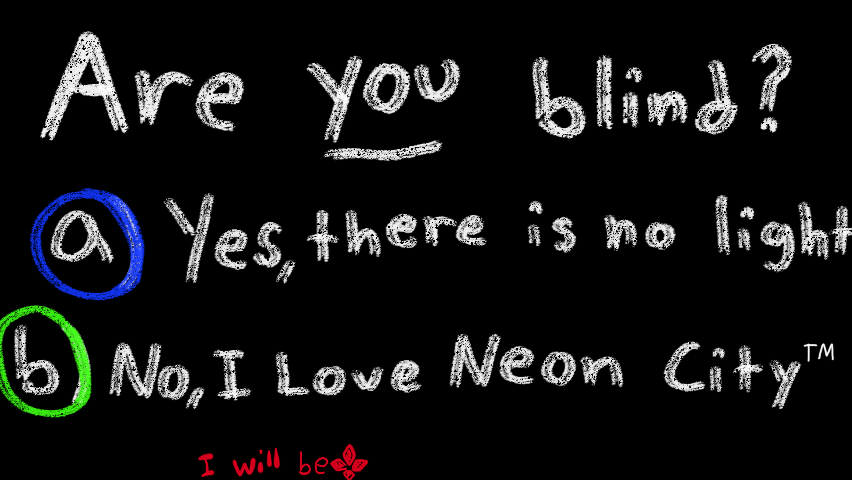 Are you blind?
a Yes, there is no light
b, No, I Love Neon City™
I will be